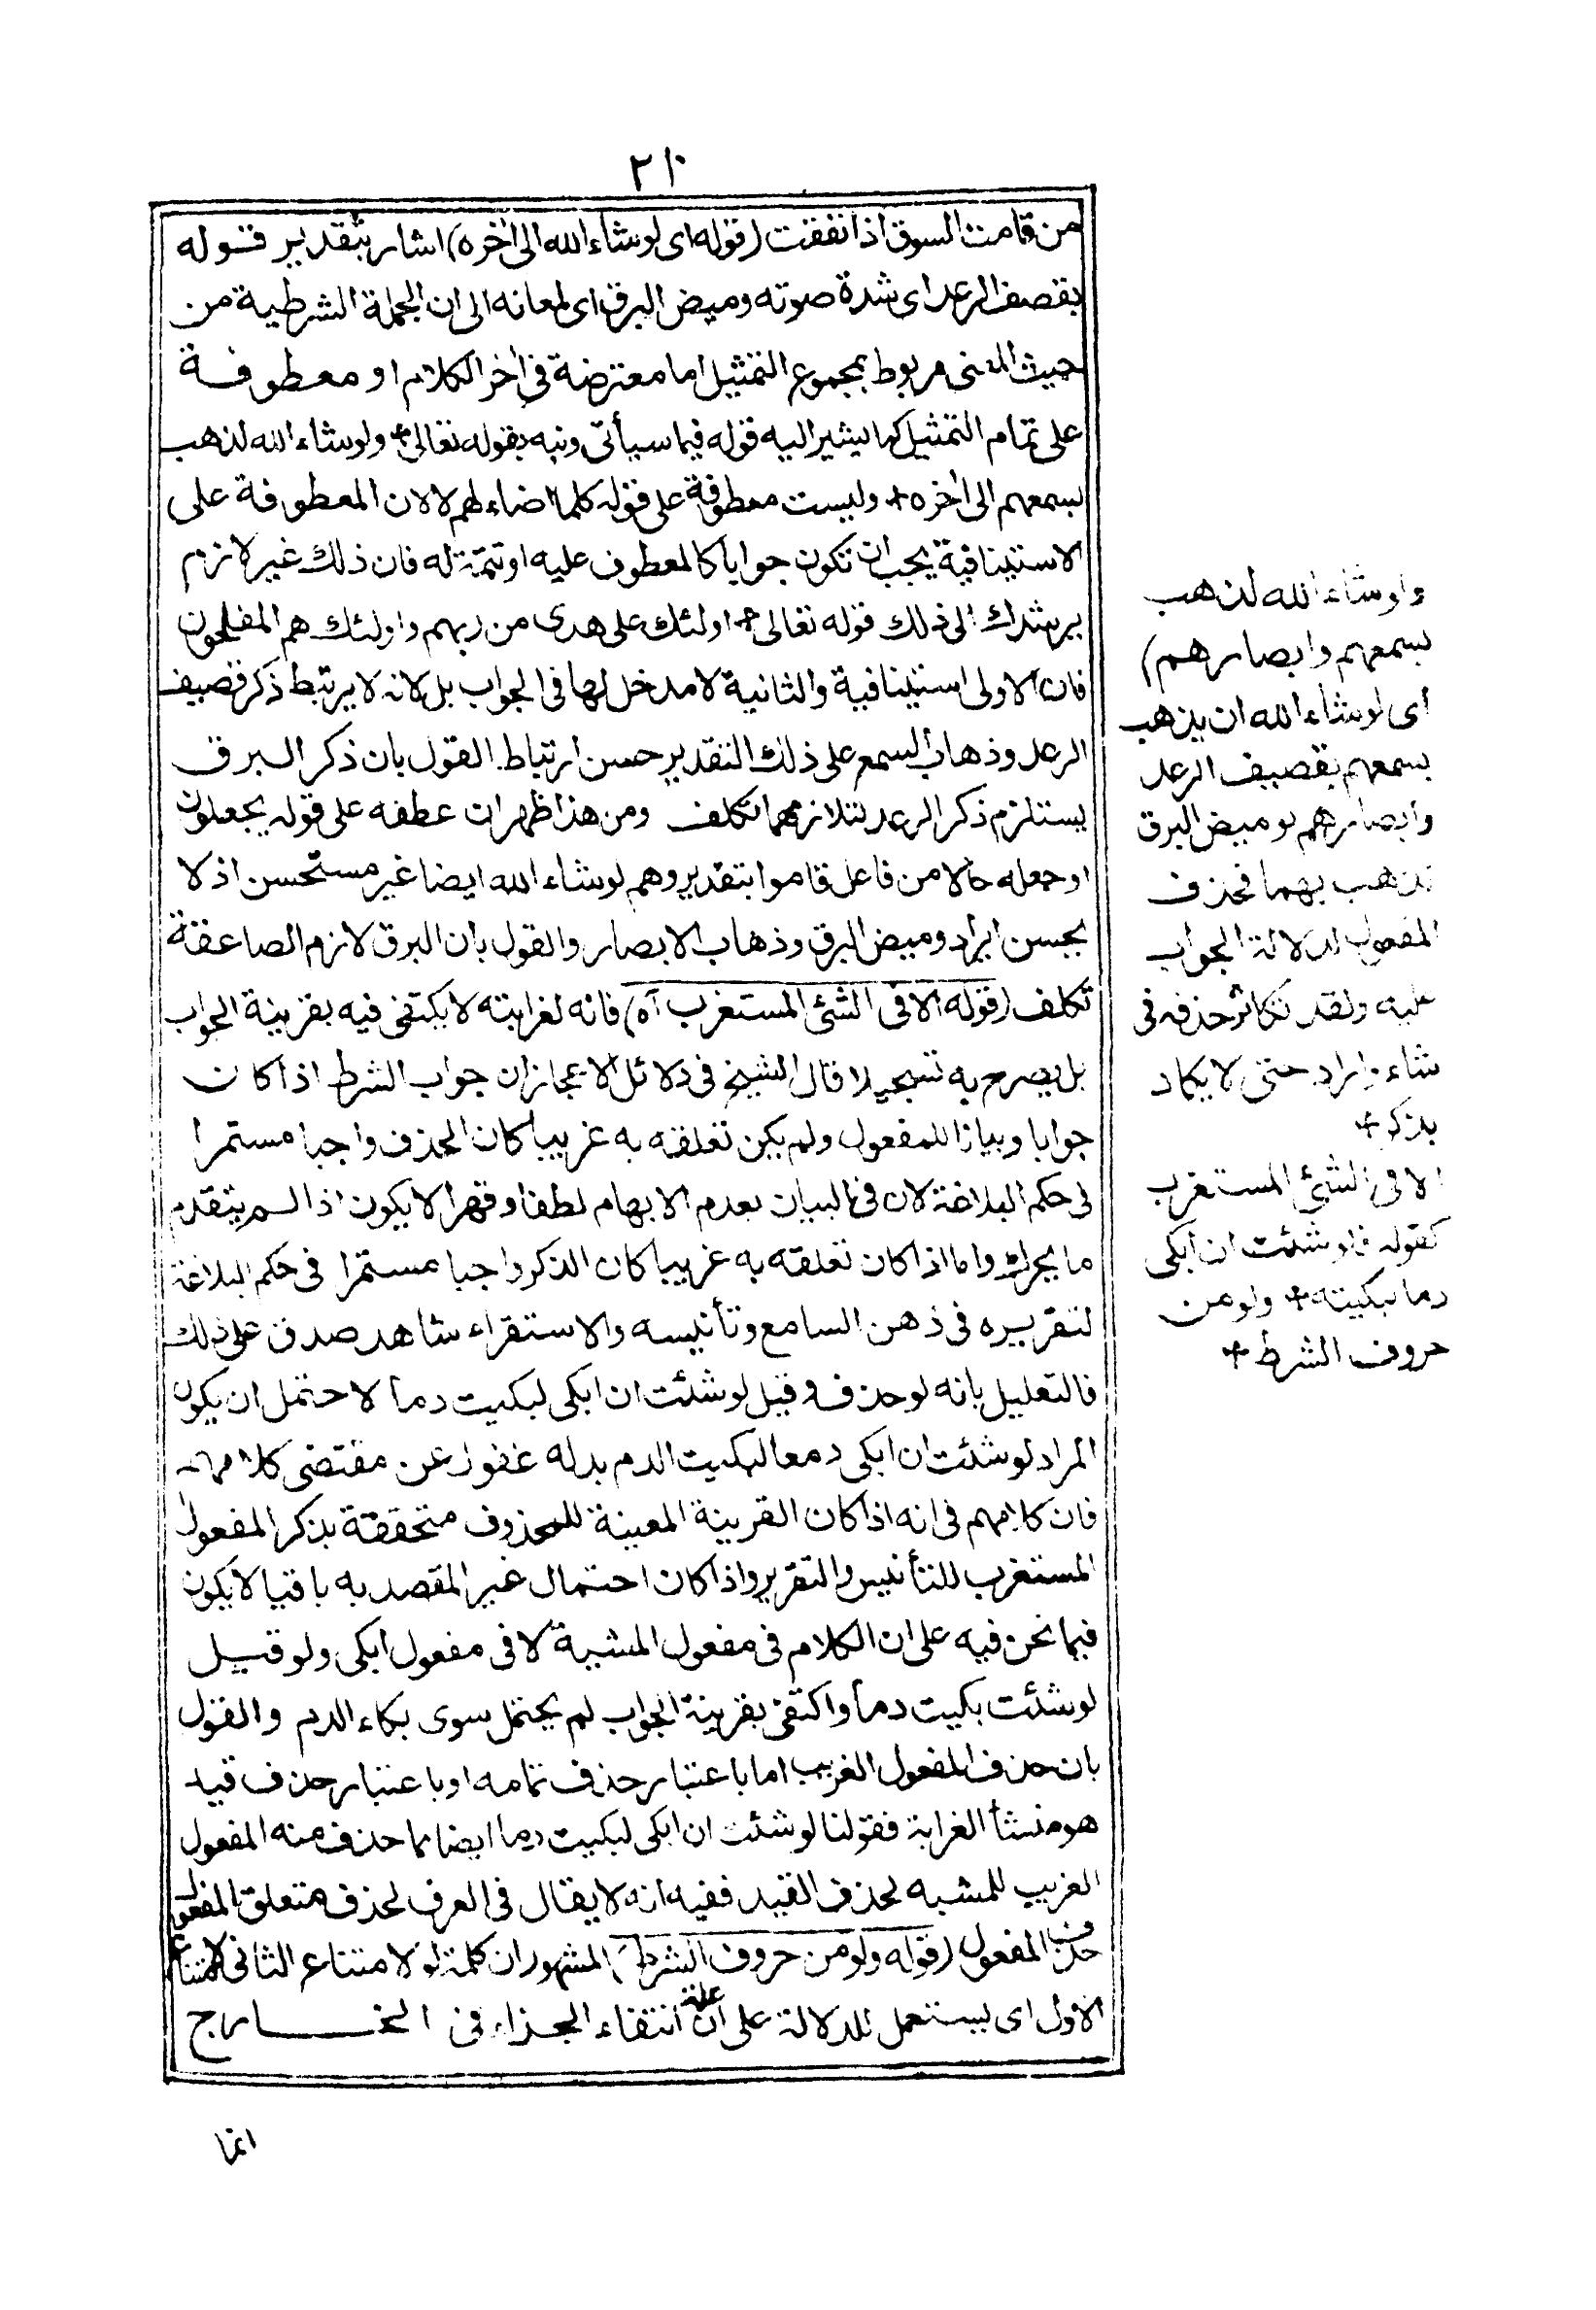 ٢١٠
من قامت السوق اذا نفقت (قوله اى لو شاء الله الى اخره) اشار بتقدير قوله
بقصف الرعد اى شدة صوته وميض البرق اى لمعانه الى ان الجملة الشرطية من
حيث المعنى مربوط بمجموع التمثيل اما معترضة فى اخر الكلام او معطوفة
على تمام التمثيل كما يشير اليه قوله فيما سيأتى ونبه بقوله تعالى + ولو شاء الله لذهب
بسمعهم الى اخره + وليست معطوفة على قوله كلما اضاء لهم لا لان المعطوفة على
الاستينافية يجب ان تكون جوابا كالمعطوف عليه او تتمة له فان ذلك غير لازم
يرشدك الى ذلك قوله تعالى + اولئك على هدى من ربهم واولئك هم المفلحون
فان الاولى استينافية والثانية لا مدخل لها فى الجواب بل لانه لا يرتبط ذكر قصيف
الرعد وذهاب السمع على ذلك التقدير حسن ارتباط القول بان ذكر البرق
يستلزم ذكر الرعد لتلازمهما تكلف ومن هذا ظهر ان عطفه على قوله يجعلون
او جعله حالا من فاعل قاموا بتقدير وهم لو شاء الله ايضا غير مستحسن اذ لا
يحسن ايراد وميض البرق وذهاب الابصار والقول بان البرق لازم الصاعقة
تكلف (قوله الا فى الشئ المستغرب آه) فانه لغرابته لا يكتفى فيه بقرينة الجواب
بل يصرح به تسجيلا قال الشيخ فى دلائل الاعجاز ان جواب الشرط اذا كان
جوابا وبيانا للمفعول ولم يكن تعلقه به غريبا كان الحذف واجبا مستمرا
فى حكم البلاغة لان فى البيان بعدم الابهام لطفا وقهرا لا يكون اذا لم يتقدم
ما يحرك واما اذا كان تعلقه به غريبا كان الذكر واجبا مستمرا فى حكم البلاغة
لتقريره فى ذهن السامع وتأنيسه والاستقراء شاهد صدق على ذلك
فالتعليل بانه لو حذف وقيل لو شئت ان ابكى لبكيت دما لاحتمل ان يكون
المراد لو شئت ان ابكى دمعا لبكيت الدم بدله غفول عن مقتضى كلامهم
فان كلامهم فى انه اذا كان القرينة المعينة للمحذوف متحققة يذكر المفعول
المستغرب للتأنيس والتقرير واذا كان احتمال غير المقصد به باقيا لا يكون
فيما نحن فيه على ان الكلام فى مفعول المشية لا فى مفعول ابكى ولو قيل
لو شئت بكيت دما واكتفى بقرينة الجواب لم يحتمل سوى بكاء الدم والقول
بان حذف المفعول الغريب اما باعتبار حذف تمامه او باعتبار حذف قيد
هو منشأ الغرابة فقولنا لو شئت ان ابكى لبكيت دما ايضا مما حذف منه المفعول
الغريب للمشيه لحذف القيد ففيه انه لا يقال فى العرف لحذف متعلق المفعول
حذف المفعول (قوله ولو من حروف الشرط) المشهور ان كلمة لو لامتناع الثانى لامتناع
الاول اى يستعمل للدلالة على ان علة انتفاء الجزاء فى الخارج
انما
ولو شاء الله لذهب
بسمعهم وابصارهم)
اى لو شاء الله ان يذهب
بسمعهم بقصيف الرعد
وابصارهم بوميض البرق
لذهب بهما فحذف
المفعول لدلالة الجواب
عليه ولقد تكاثر حذفه فى
شاء واراد حتى لا يكاد
يذكر +
الا فى الشئ المستغرب
كقوله فلو شئت ان ابكى
دما لبكيته + ولو من
حروف الشرط +